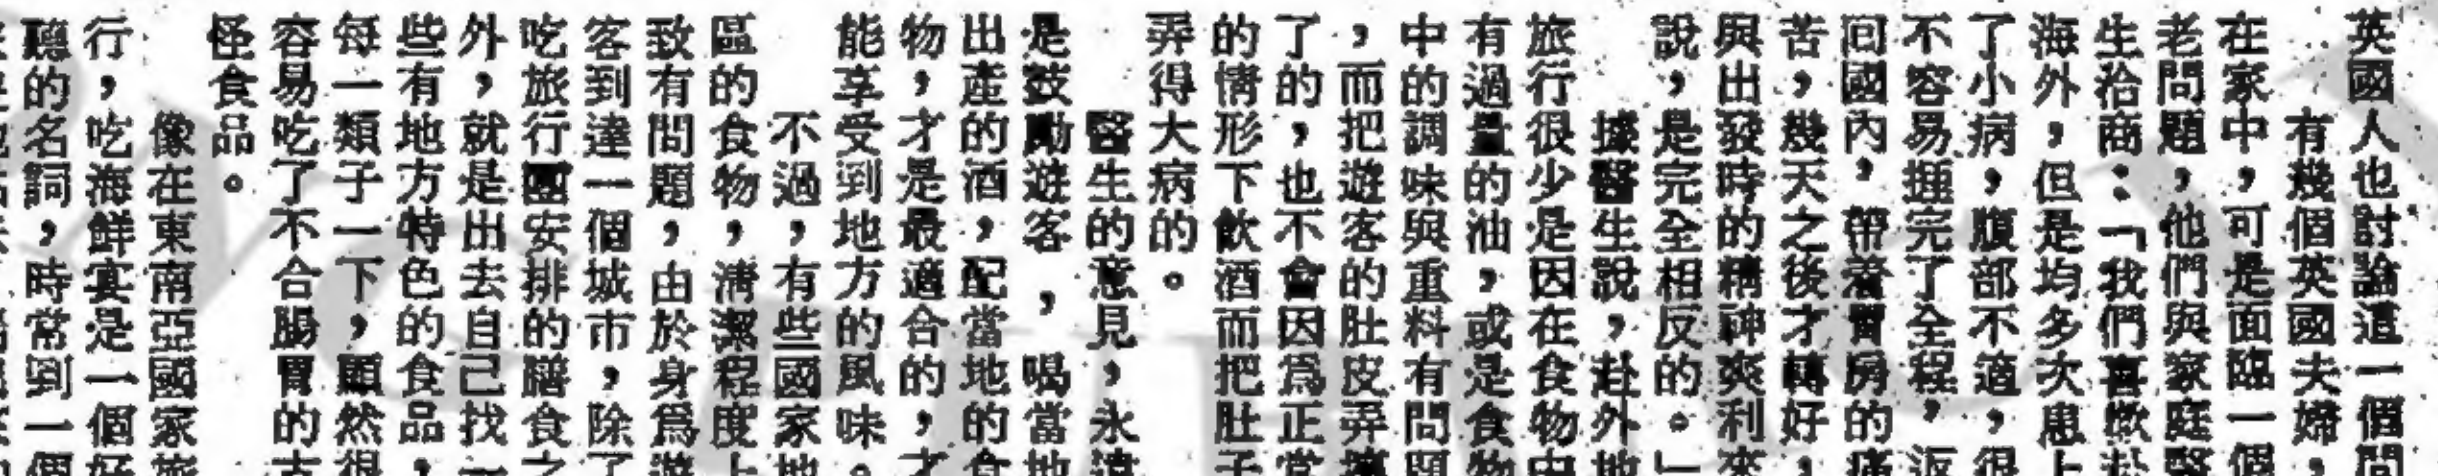 英國人也討論這一個問
有幾個英國夫婦，
在家中，可是面臨一個
老問題，他們與家庭醫
生洽商：「我們喜歡赴
海外，但是均多次患上
了小病，腹部不適，很
不容易捱完了全程，返
回國內，帶着胃房的痛
苦，幾天之後才轉好，
與出發時的精神爽利來
說，是完全相反的。」
據醫生說，赴外地
旅行很少是因在食物中
有過量的油，或是食物
中的調味與重料有問題
，而把遊客的肚皮弄壞
了的，也不會因爲正常
的情形下飲酒而把肚子
弄得大病的。
醫生的意見，永遠
是鼓勵遊客，喝當地
出產的酒，配當地的食
物，才是最適合的，才
能享受到地方的風味。
不過，有些國家地
區的食物，清潔程度上
致有問題，由於身爲遊
客到達一個城市，除了
吃旅行團安排的膳食之
外，就是出去自己找一
些有地方特色的食品，
每一類子一下，顯然很
容易吃了不合腸胃的古
怪食品。
像在東南亞國家旅
行，吃海鮮宴是一個好
聽的名詞，時常到一個